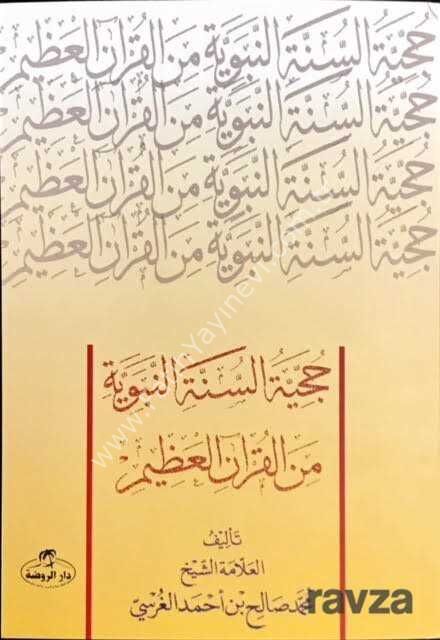 حُجِّيَّةُ السُّنَّةِ النَّبَوِيَّةِ مِنَ القُرْآنِ العَظِيمِ
حُجِّيَّةُ السُّنَّةِ النَّبَوِيَّةِ مِنَ القُرْآنِ العَظِيمِ
حُجِّيَّةُ السُّنَّةِ النَّبَوِيَّةِ مِنَ القُرْآنِ العَظِيمِ
حُجِّيَّةُ السُّنَّةِ النَّبَوِيَّةِ مِنَ القُرْآنِ العَظِيمِ
حُجِّيَّةُ السُّنَّةِ النَّبَوِيَّةِ
مِنَ القُرْآنِ العَظِيمِ
تَأْلِيفُ
العَلّامَة الشَّيْخ
مُحَمَّد صَالِح بن أَحْمَد الغُرْسِيّ
دار الروضة
ravza